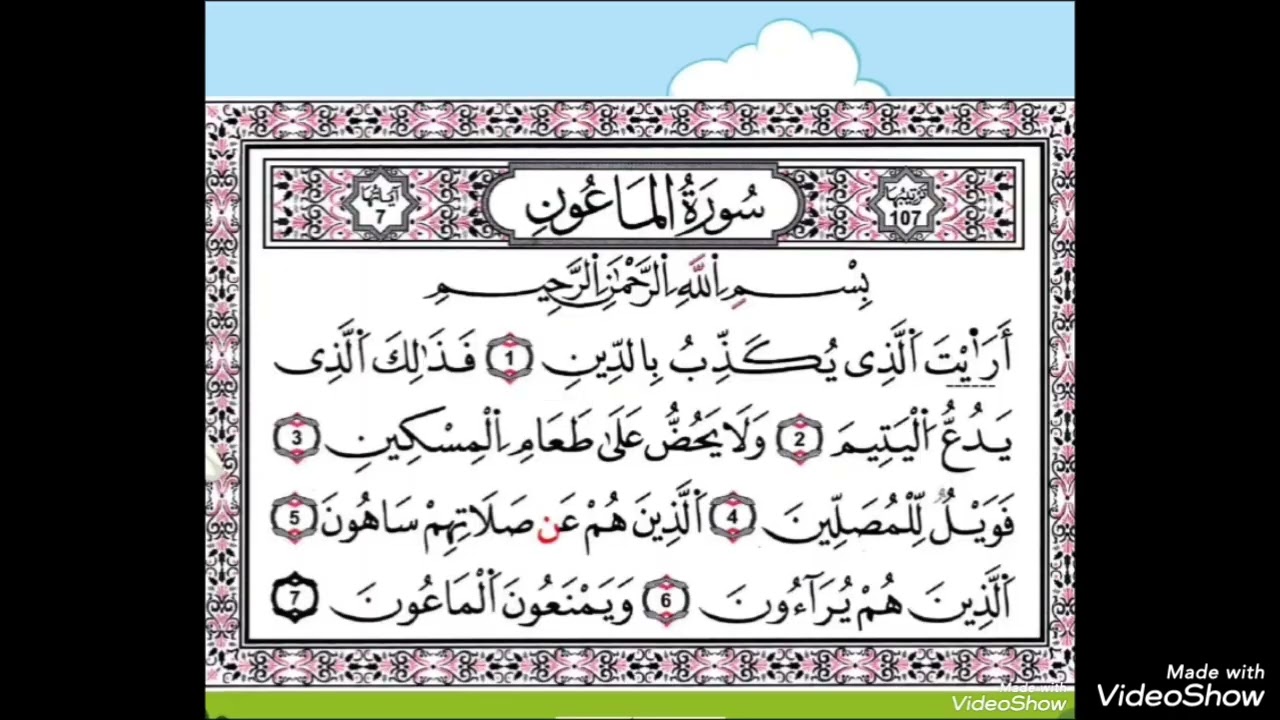 ترتيبها 107
سُورَةُ المَاعُونِ
آياتها 7
بِسْمِ اِللَّهِ اِلرَّحْمَٰنِ اِلرَّحِيمِ
أَرَٰيْتَ اَلَّذِى يُكَذِّبُ بِالدِّينِ 1 فَذَٰلِكَ اَلَّذِى
يَدُعُّ اُلْيَتِيمَ 2 وَلَا يَحُضُّ عَلَىٰ طَعَامِ اِلْمِسْكِينِ 3
فَوَيْلٌ لِّلْمُصَلِّينَ 4 اَلَّذِينَ هُمْ عَن صَلَاتِهِمْ سَاهُونَ 5
اَلَّذِينَ هُمْ يُرَآءُونَ 6 وَيَمْنَعُونَ اَلْمَاعُونَ 7
Made with
VideoShow
Made with
VideoShow